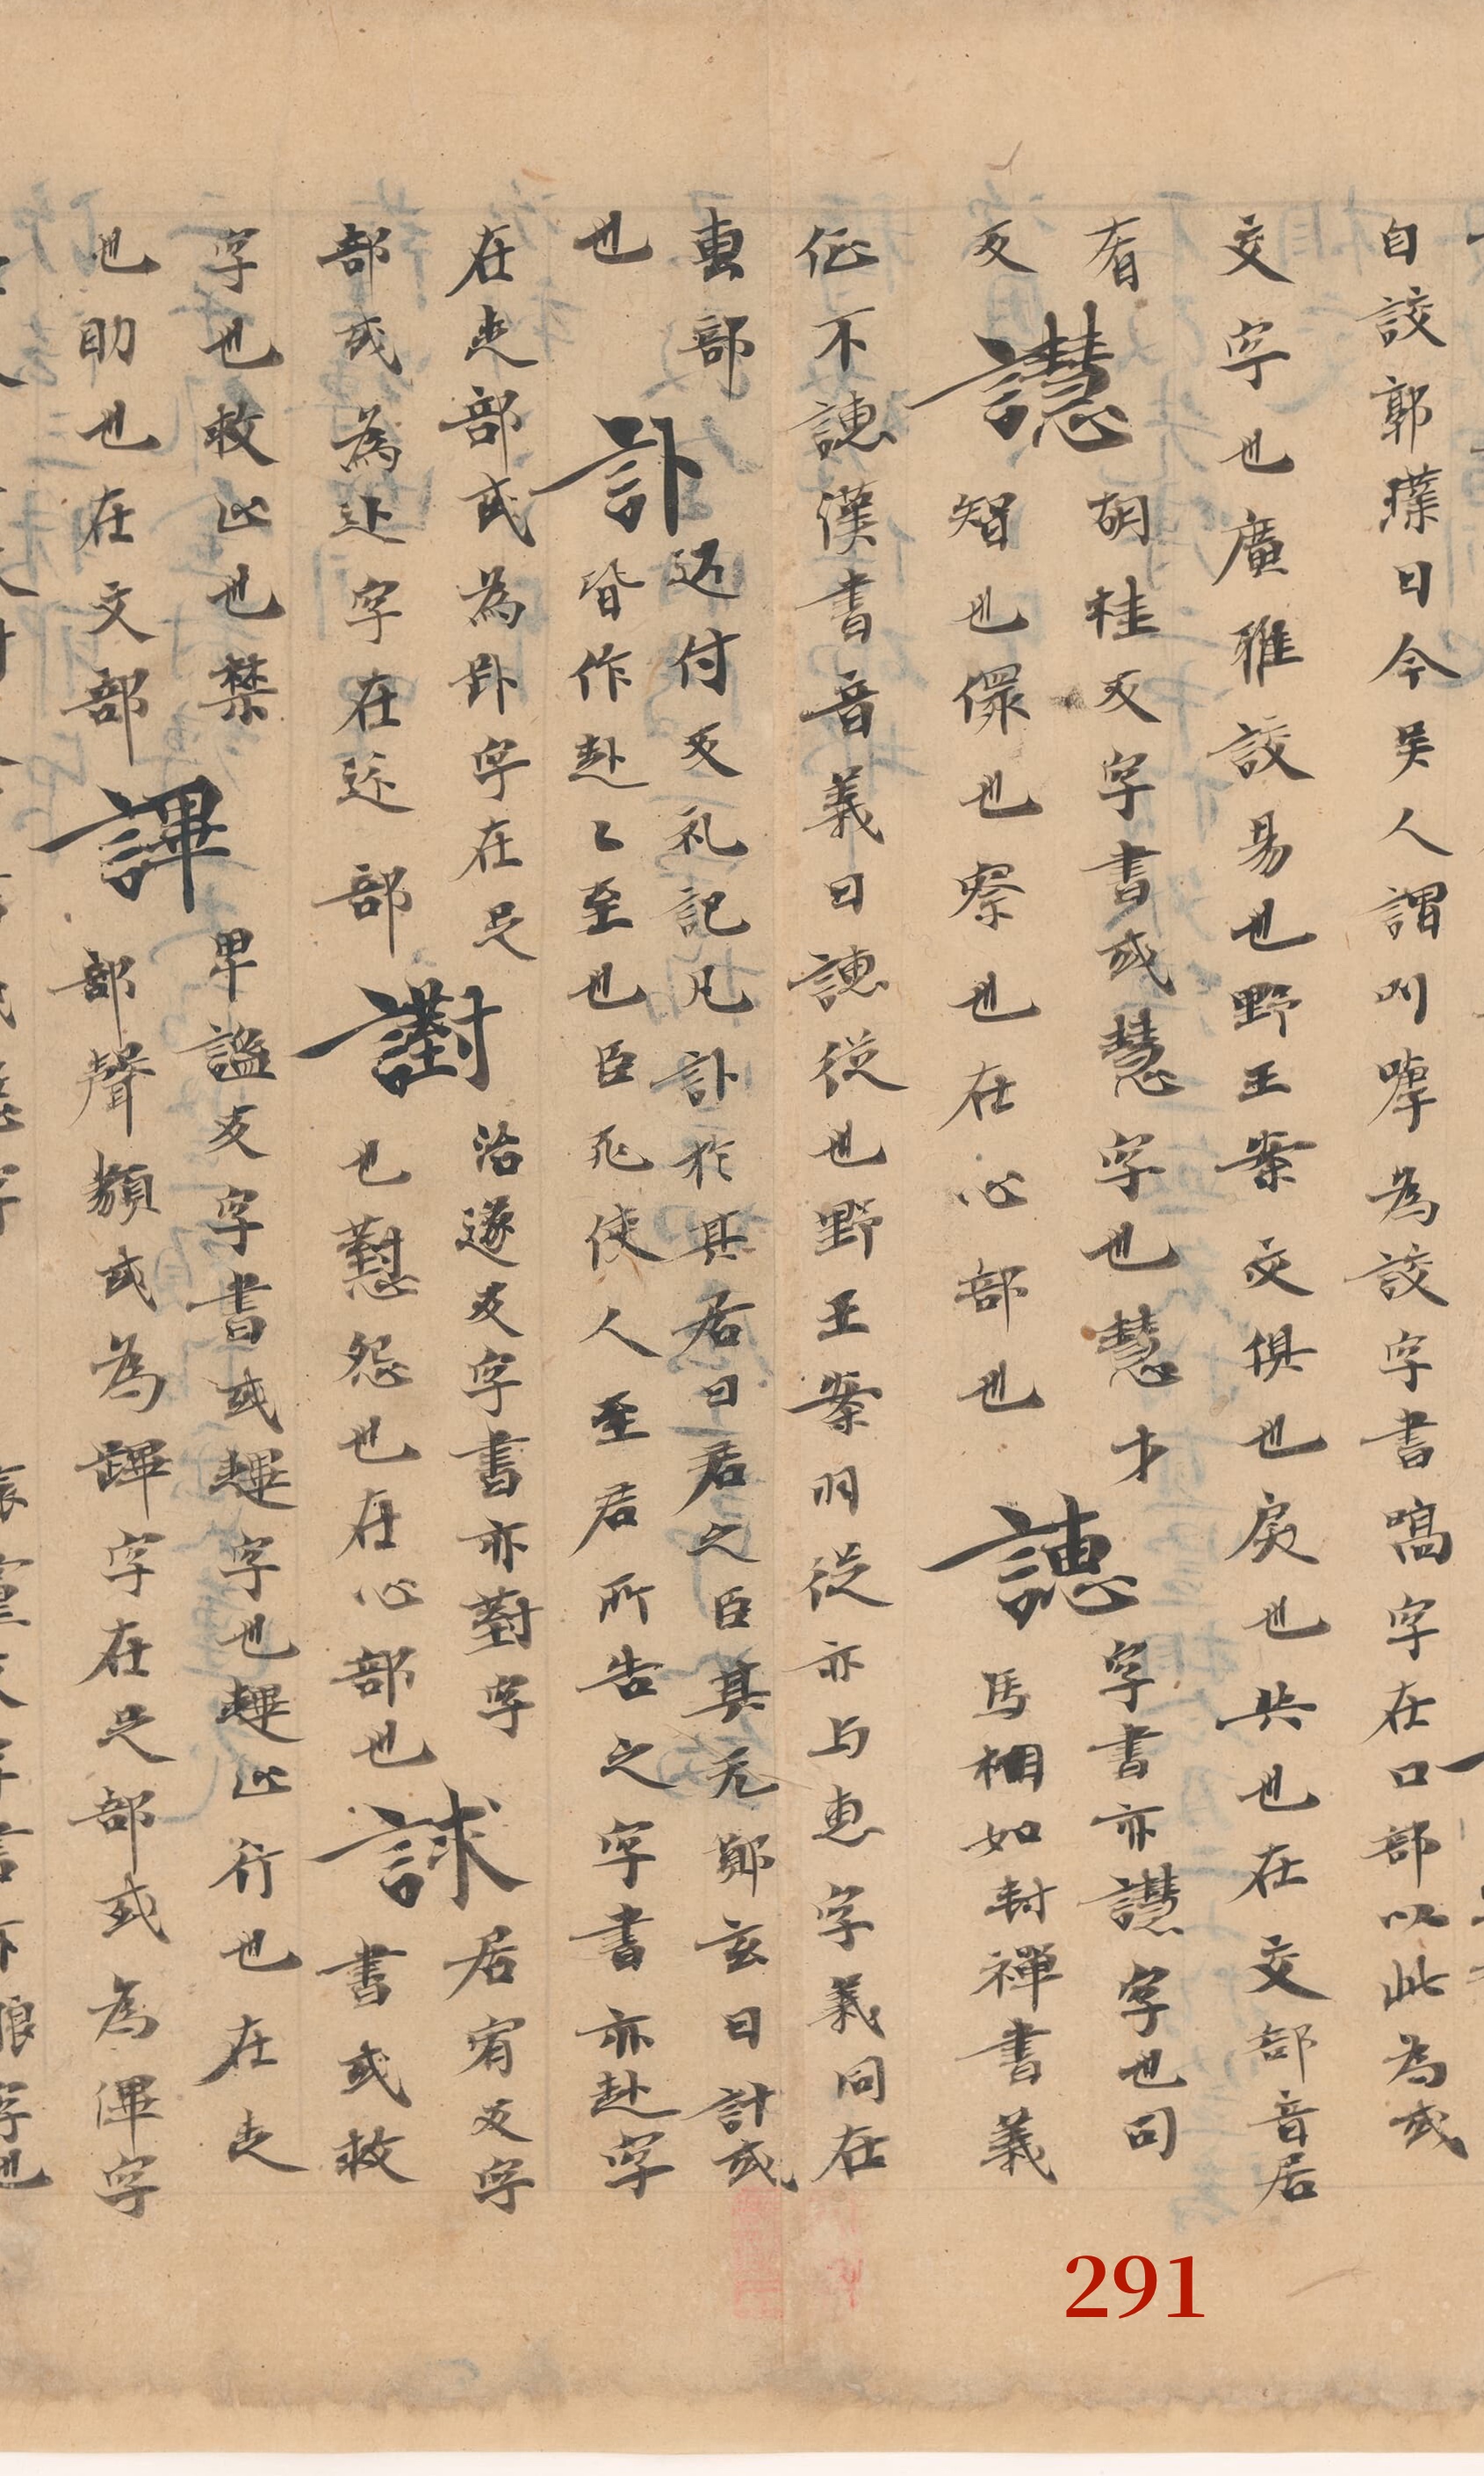 自詨郭璞曰今吴人謂叫嘑為詨字書嗃字在口部以此為或
交字也廣雅詨易也野王案交俱也戾也共也在交部音居
有
反
譿
胡桂反字書或慧字也慧才
智也儇也察也在心部也
譓
字書亦譿字也司
馬相如封禪書義
征不譓漢書音義曰譓從也野王案羽從亦与惠字義同在
叀部
也
訃
还付反礼記凡訃於其居曰君之臣其无鄭玄曰訃或
皆作赴〻至也臣死使人至君所告之字書亦赴字
在走部或為卧字在足
部或為辻字在辵部
譵
治遂反字書亦對字
也懟怨也在心部也
訹
居宥反字
書或救
字也救止也禁
也助也在文部
譁
卑謐反字書或趩字也趩止行也在走
部聲類或為蹕字在足部或為僤字
291